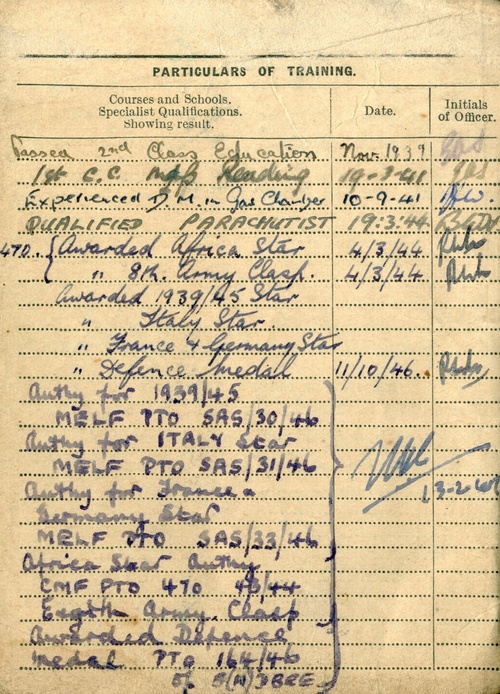 PARTICULARS OF TRAINING.
Courses and Schools.
Specialist Qualifications.
Showing result.
Date.
Initials
of Officer.
Passed 2nd Class Education Nov. 1939
1st C.C. Map Reading 19-3-41
Experienced D.M. in Gas Chamber 10-9-41
QUALIFIED PARACHUTIST 19:3:44
470. Awarded Africa Star 4/3/44
" 8th. Army Clasp. 4/3/44
Awarded 1939/45 Star
" Italy Star.
" France & Germany Star
" Defence Medal 11/10/46.
Authy for 1939/45
MELF PTO SAS/30/46
Authy for ITALY Star
MELF PTO SAS/31/46
Authy for France &
Germany Star
MELF PTO SAS/33/46
Africa Star Authy
CMF PTO 470 43/44
Eighth Army Clasp
Awarded Defence
Medal PTO 164/46
of